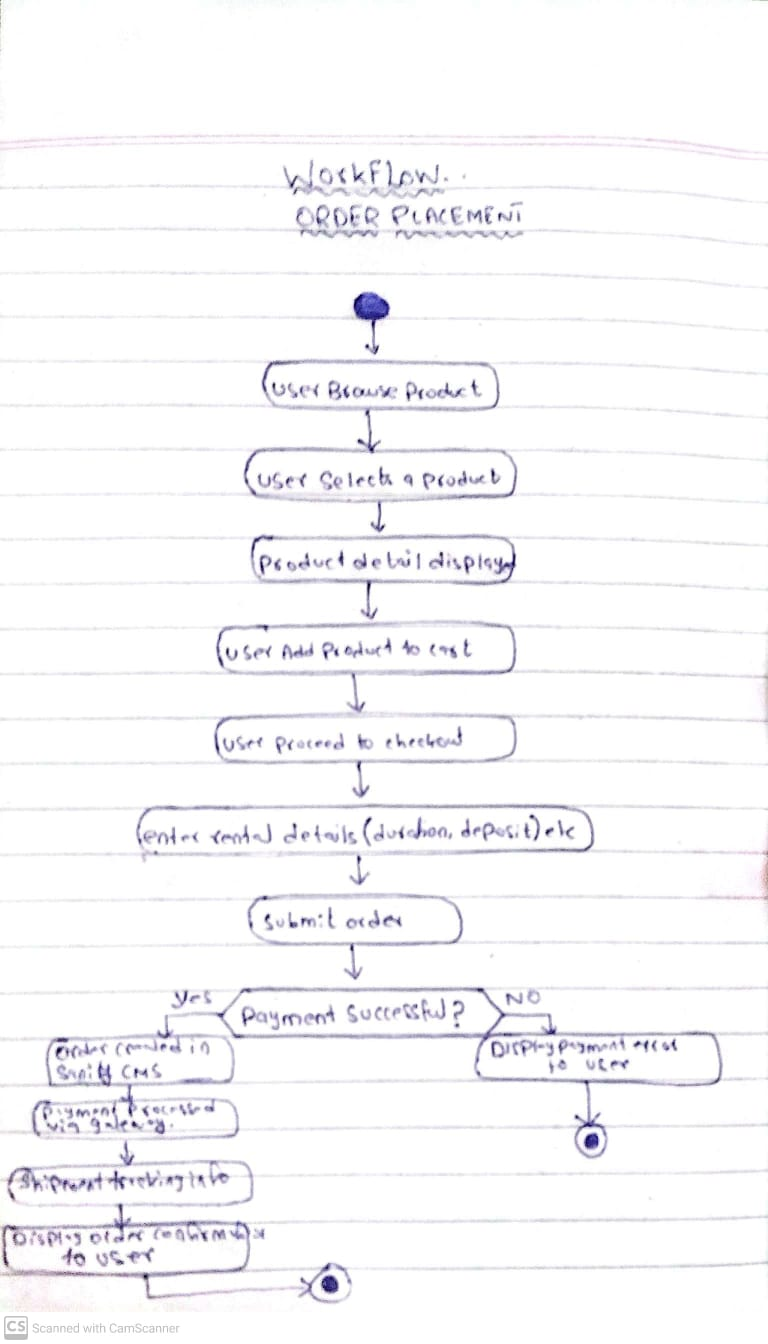 WorkFlow..
ORDER PLACEMENT
User Browse Product
User Selects a product
Product detail display
User Add Product to cart
User proceed to checkout
enter rental details (duration, deposit) etc
Submit order
Yes
Payment Successful?
NO
Order created in
Sanity CMS
Display payment error
to user
Payment Processed
via gateway.
Shipment tracking info
Display order confirmation
to user
CS Scanned with CamScanner